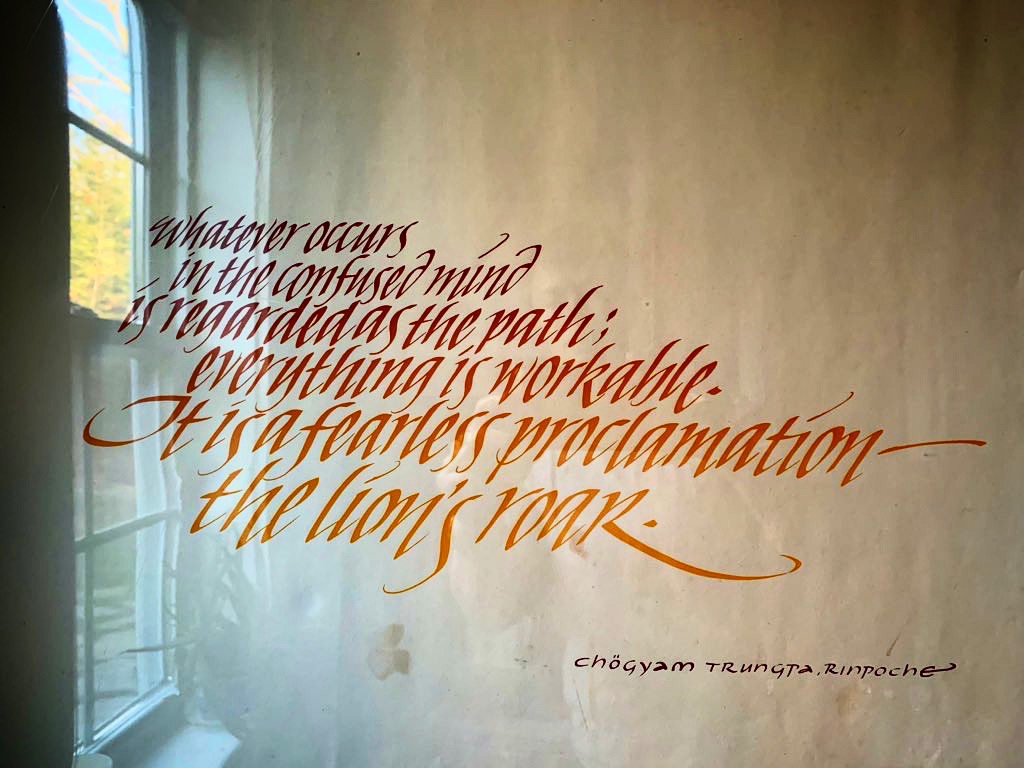 whatever occurs
in the confused mind
is regarded as the path;
everything is workable.
It is a fearless proclamation—
the lion's roar.
Chögyam Trungpa, Rinpoche